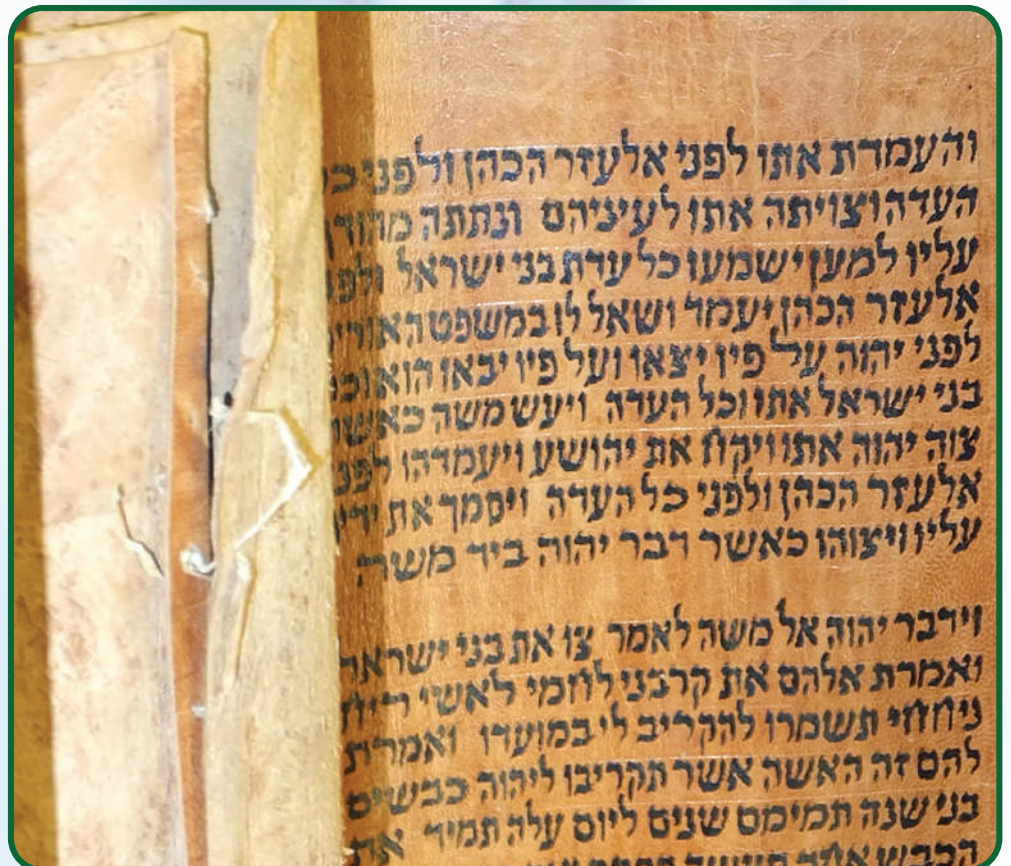 והעמדת אתו לפני אלעזר הכהן ולפני
העדה וצויתה אתו לעיניהם ונתתה מהודך
עליו למען ישמעו כל עדת בני ישראל
אלעזר הכהן יעמד ושאל לו במשפט
לפני יהוה על פיו יצאו ועל פיו יבאו הוא
בני ישראל אתו וכל העדה ויעש משה כאשר
צוה יהוה אתו ויקח את יהושע ויעמדהו לפני
אלעזר הכהן ולפני כל העדה ויסמך את
עליו ויצוהו כאשר דבר יהוה ביד משה
וידבר יהוה אל משה לאמר צו את בני ישראל
ואמרת אלהם את קרבני לחמי לאשי ריח
ניחחי תשמרו להקריב לי במועדו ואמרת
להם זה האשה אשר תקריבו ליהוה כבשים
בני שנה תמימם שנים ליום עלה תמיד את